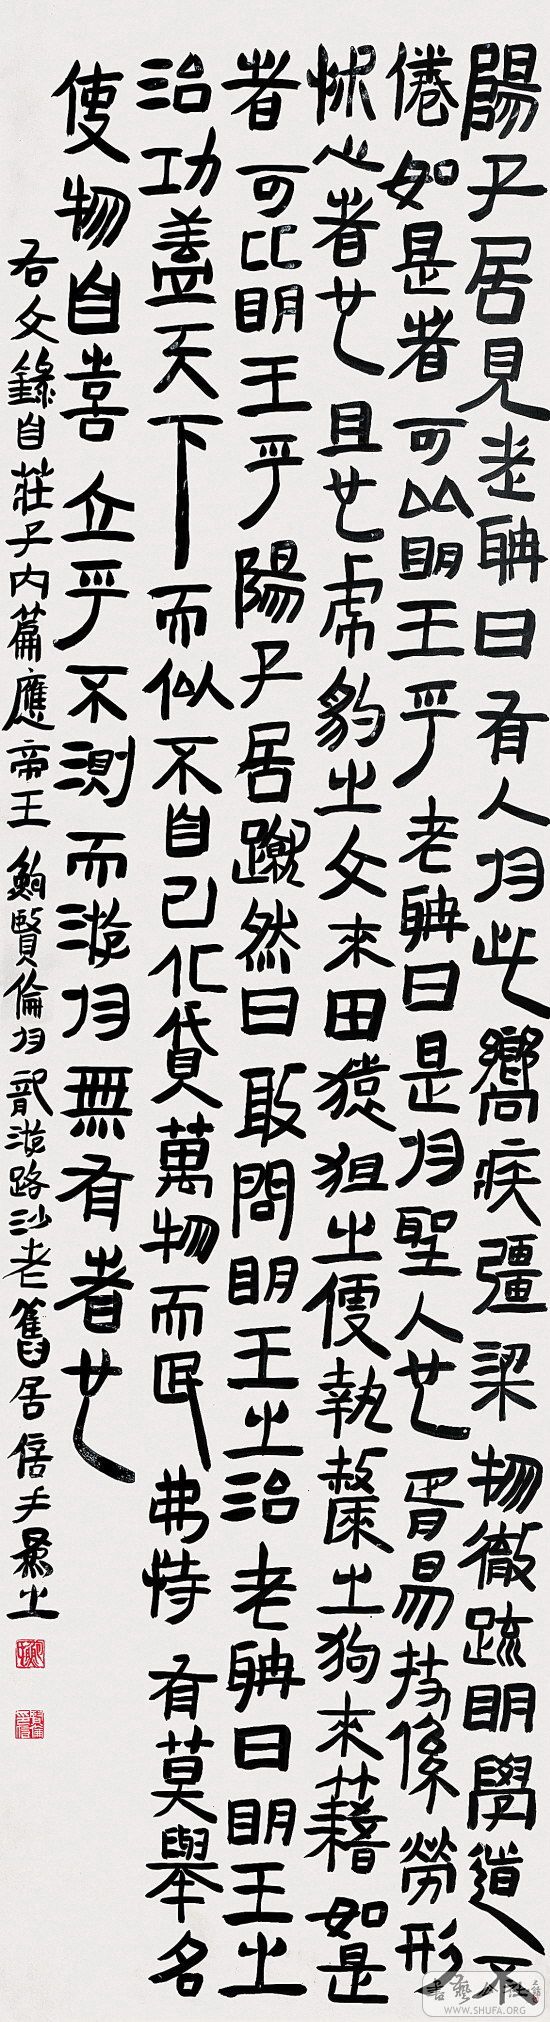 陽子居見老聃曰有人於此嚮疾彊梁物徹疏明學道不
倦如是者可比明王乎老聃曰是於聖人也胥易技係勞形
怵心者也且也虎豹之文來田猨狙之便執斄之狗來藉如是
者可比明王乎陽子居蹴然曰敢問明王之治老聃曰明王之
治功蓋天下而似不自己化貸萬物而民弗恃有莫舉名
使物自喜立乎不測而游於無有者也
右文錄自莊子內篇應帝王鮑賢倫於龍游路沙老舊居信手為之
書藝公社
WWW.SHUFA.ORG